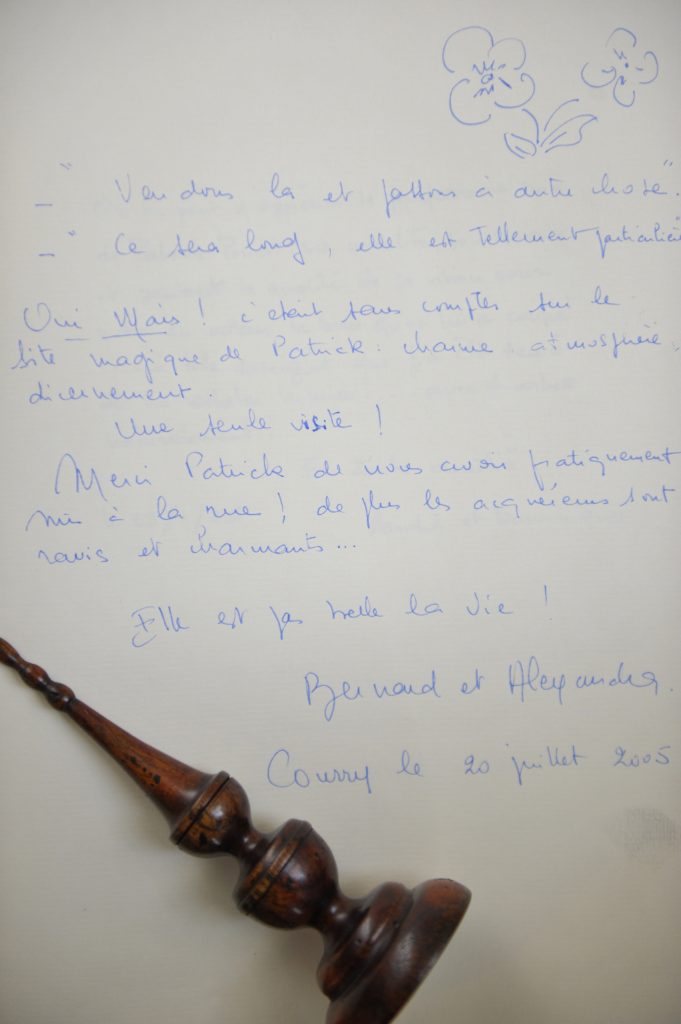 – " Vendons la et passons à autre chose".
– " Ce sera long, elle est Tellement particulière"
Oui Mais ! c'était sans compter sur le
site magique de Patrick : charme atmosphère,
dicernement.
Une seule visite !
Merci Patrick de nous avoir pratiquement
mis à la rue ! de plus les acquéreurs sont
ravis et charmants...
Elle est pas belle la vie !
Bernard et Alexandra.
Courry le 20 juillet 2005